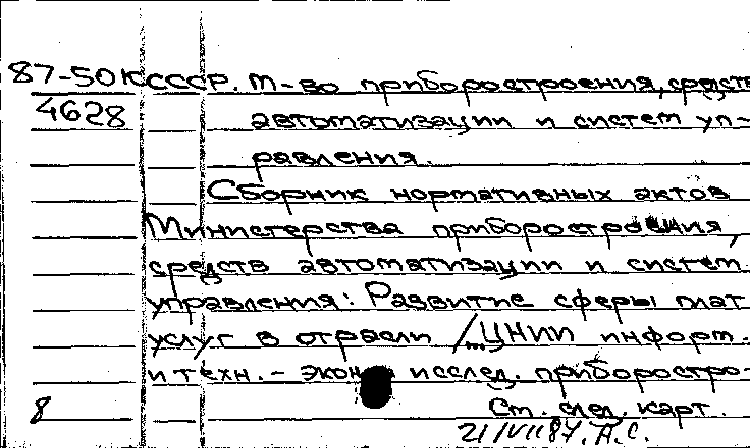 87-50К СССР. М-во приборостроения, средств
4628 автоматизации и систем уп-
равления.
Сборник нормативных актов
Министерства приборостроения,
средств автоматизации и систем
управления: Развитие сферы плат.
услуг в отрасли / ЦНИИ информ.
и техн.-экон. исслед. приборостро-
8 См. след. карт.
Л.С.